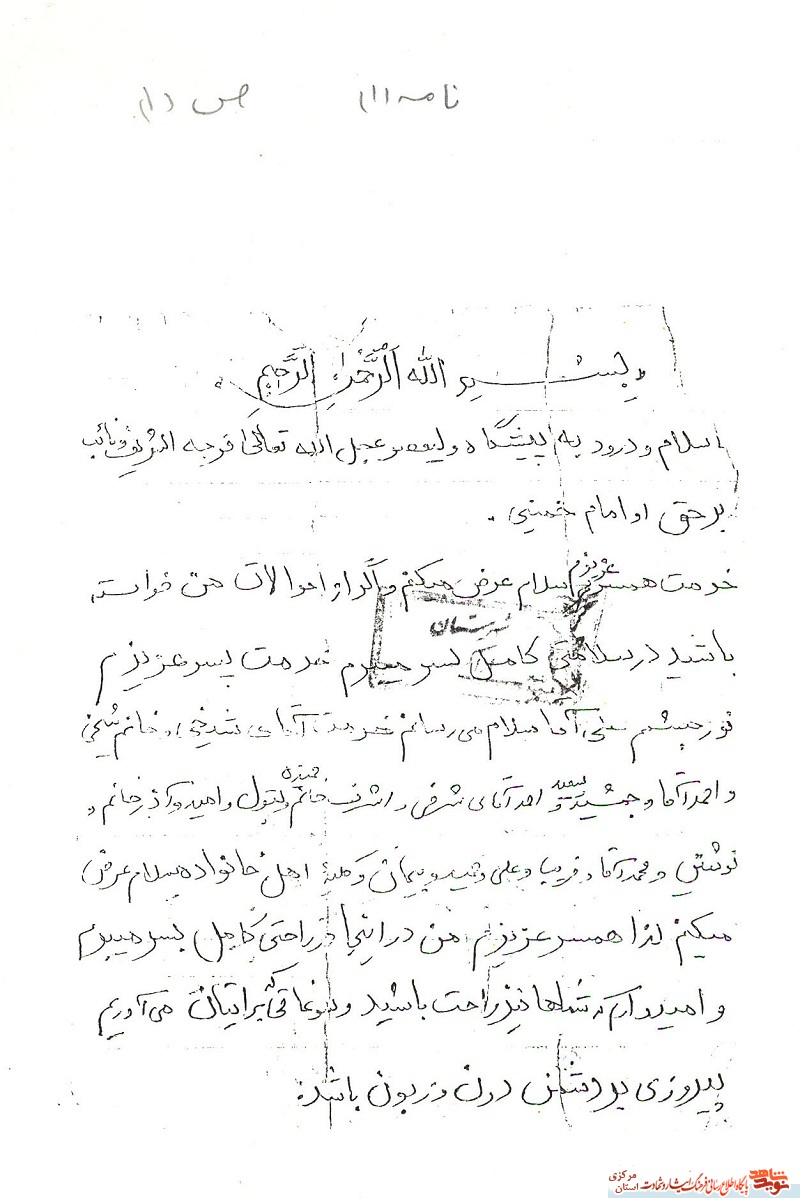 نامه ۱۱۱ ص ۱۵۱
بسم الله الرَّحْمٰنِ الرَّحیمِ
اسلام و درود به پیشگاه ولیعصر عجل الله تعالی فرجه الشریف و نائب
بر حق او امام خمینی .
خدمت همسر عزیزم سلام عرض میکنم و اگر از احوالات من خواسته
باشید در سلامتی کامل بسر میبرم خدمت پسر عزیزم
نور چشم علی آقا سلام می رسانم خدمت آقای شیخی و خانم شیخی
و احمد آقا و جمشید و سعید احمد آقای شرفی و اشرف خانم و بتول و امید و آذر خانم و
نوشین و محمد آقا و فریبا و علی و حمید و پیمان و کلیهٔ اهل خانواده سلام عرض
میکنم لذا همسر عزیزم من در اینجا در راحتی کامل بسر میبرم
و امیدوارم که شماها نیز راحت باشید و سوغاتی که برایتان می آوریم
پیروزی بر دشمن دون و زبون باشد.
خوزستان
نوید شاهد پایگاه اطلاع رسانی فرهنگ ایثار و شهادت استان مرکزی